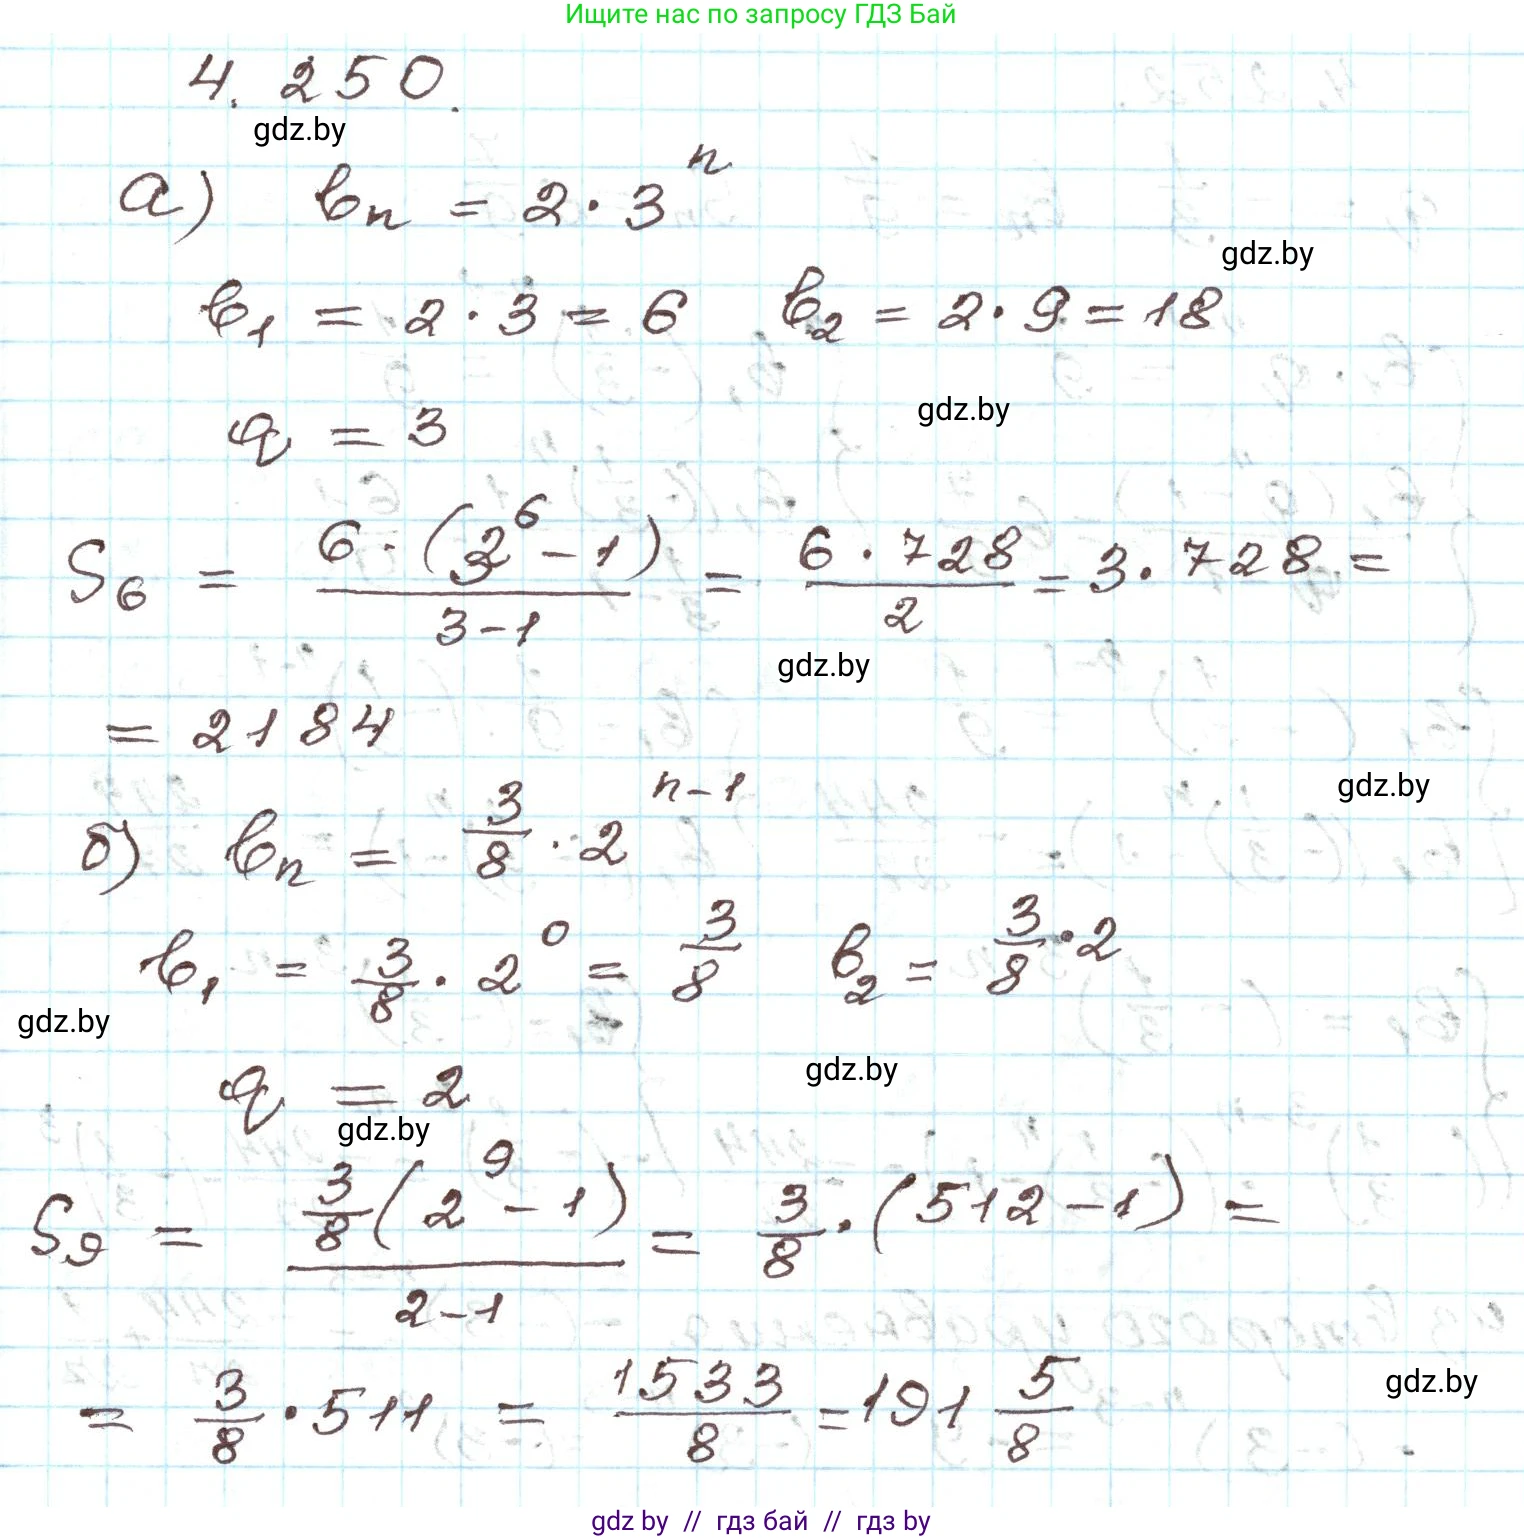 Ищите нас по запросу ГДЗ Бай
4. 250.
gdz.by
а) bₙ = 2 · 3ⁿ
gdz.by
b₁ = 2 · 3 = 6 b₂ = 2 · 9 = 18
q = 3
gdz.by
S₆ = 6 · (3⁶ - 1) / (3 - 1) = 6 · 728 / 2 = 3 · 728 =
gdz.by
= 2184
gdz.by
б) bₙ = 3/8 · 2ⁿ⁻¹
b₁ = 3/8 · 2⁰ = 3/8 b₂ = 3/8 · 2
gdz.by
gdz.by
q = 2
gdz.by
S₉ = 3/8 (2⁹ - 1) / (2 - 1) = 3/8 · (512 - 1) =
gdz.by
= 3/8 · 511 = 1533/8 = 191 5/8
gdz.by // гдз бай // гдз by